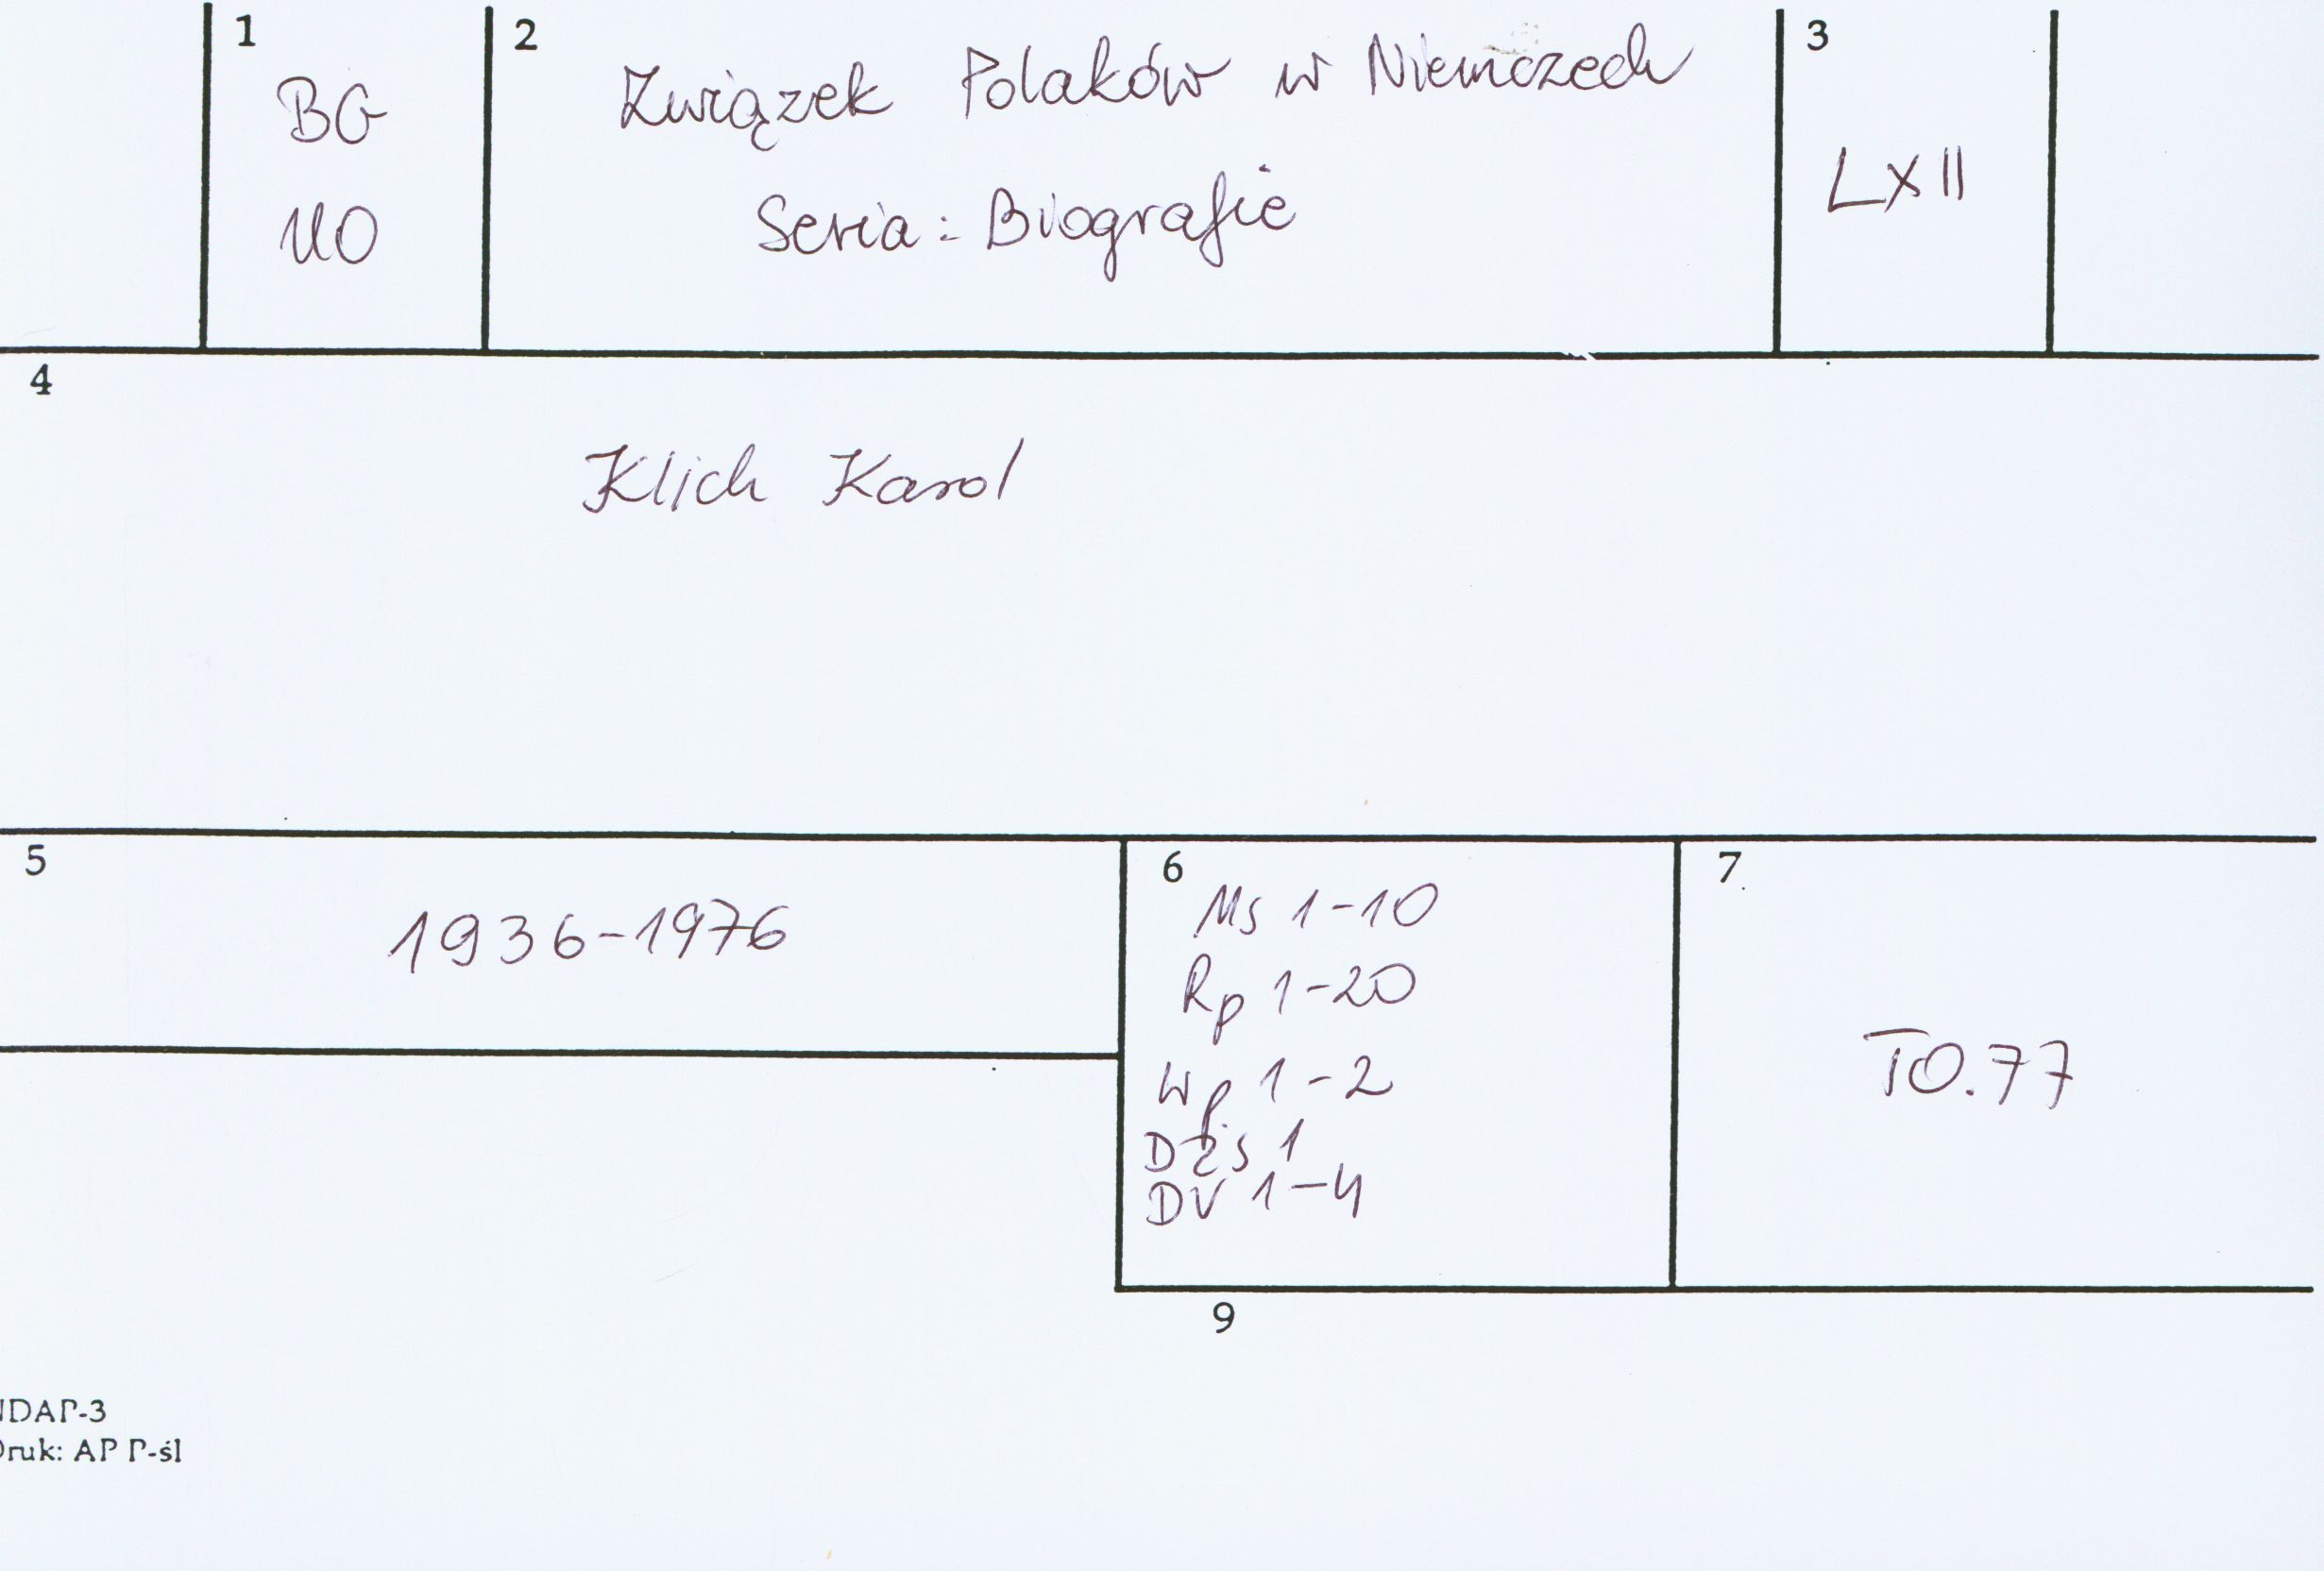 1
BG
UO
2
Związek Polaków w Niemczech
Seria: Biografie
3
LXII
4
Klich Karol
5
1936-1976
6
Ms 1-10
Rp 1-20
Wp 1-2
Dżs 1
DV 1-4
7
TO.77
9
NDAP-3
Druk: AP P-śl